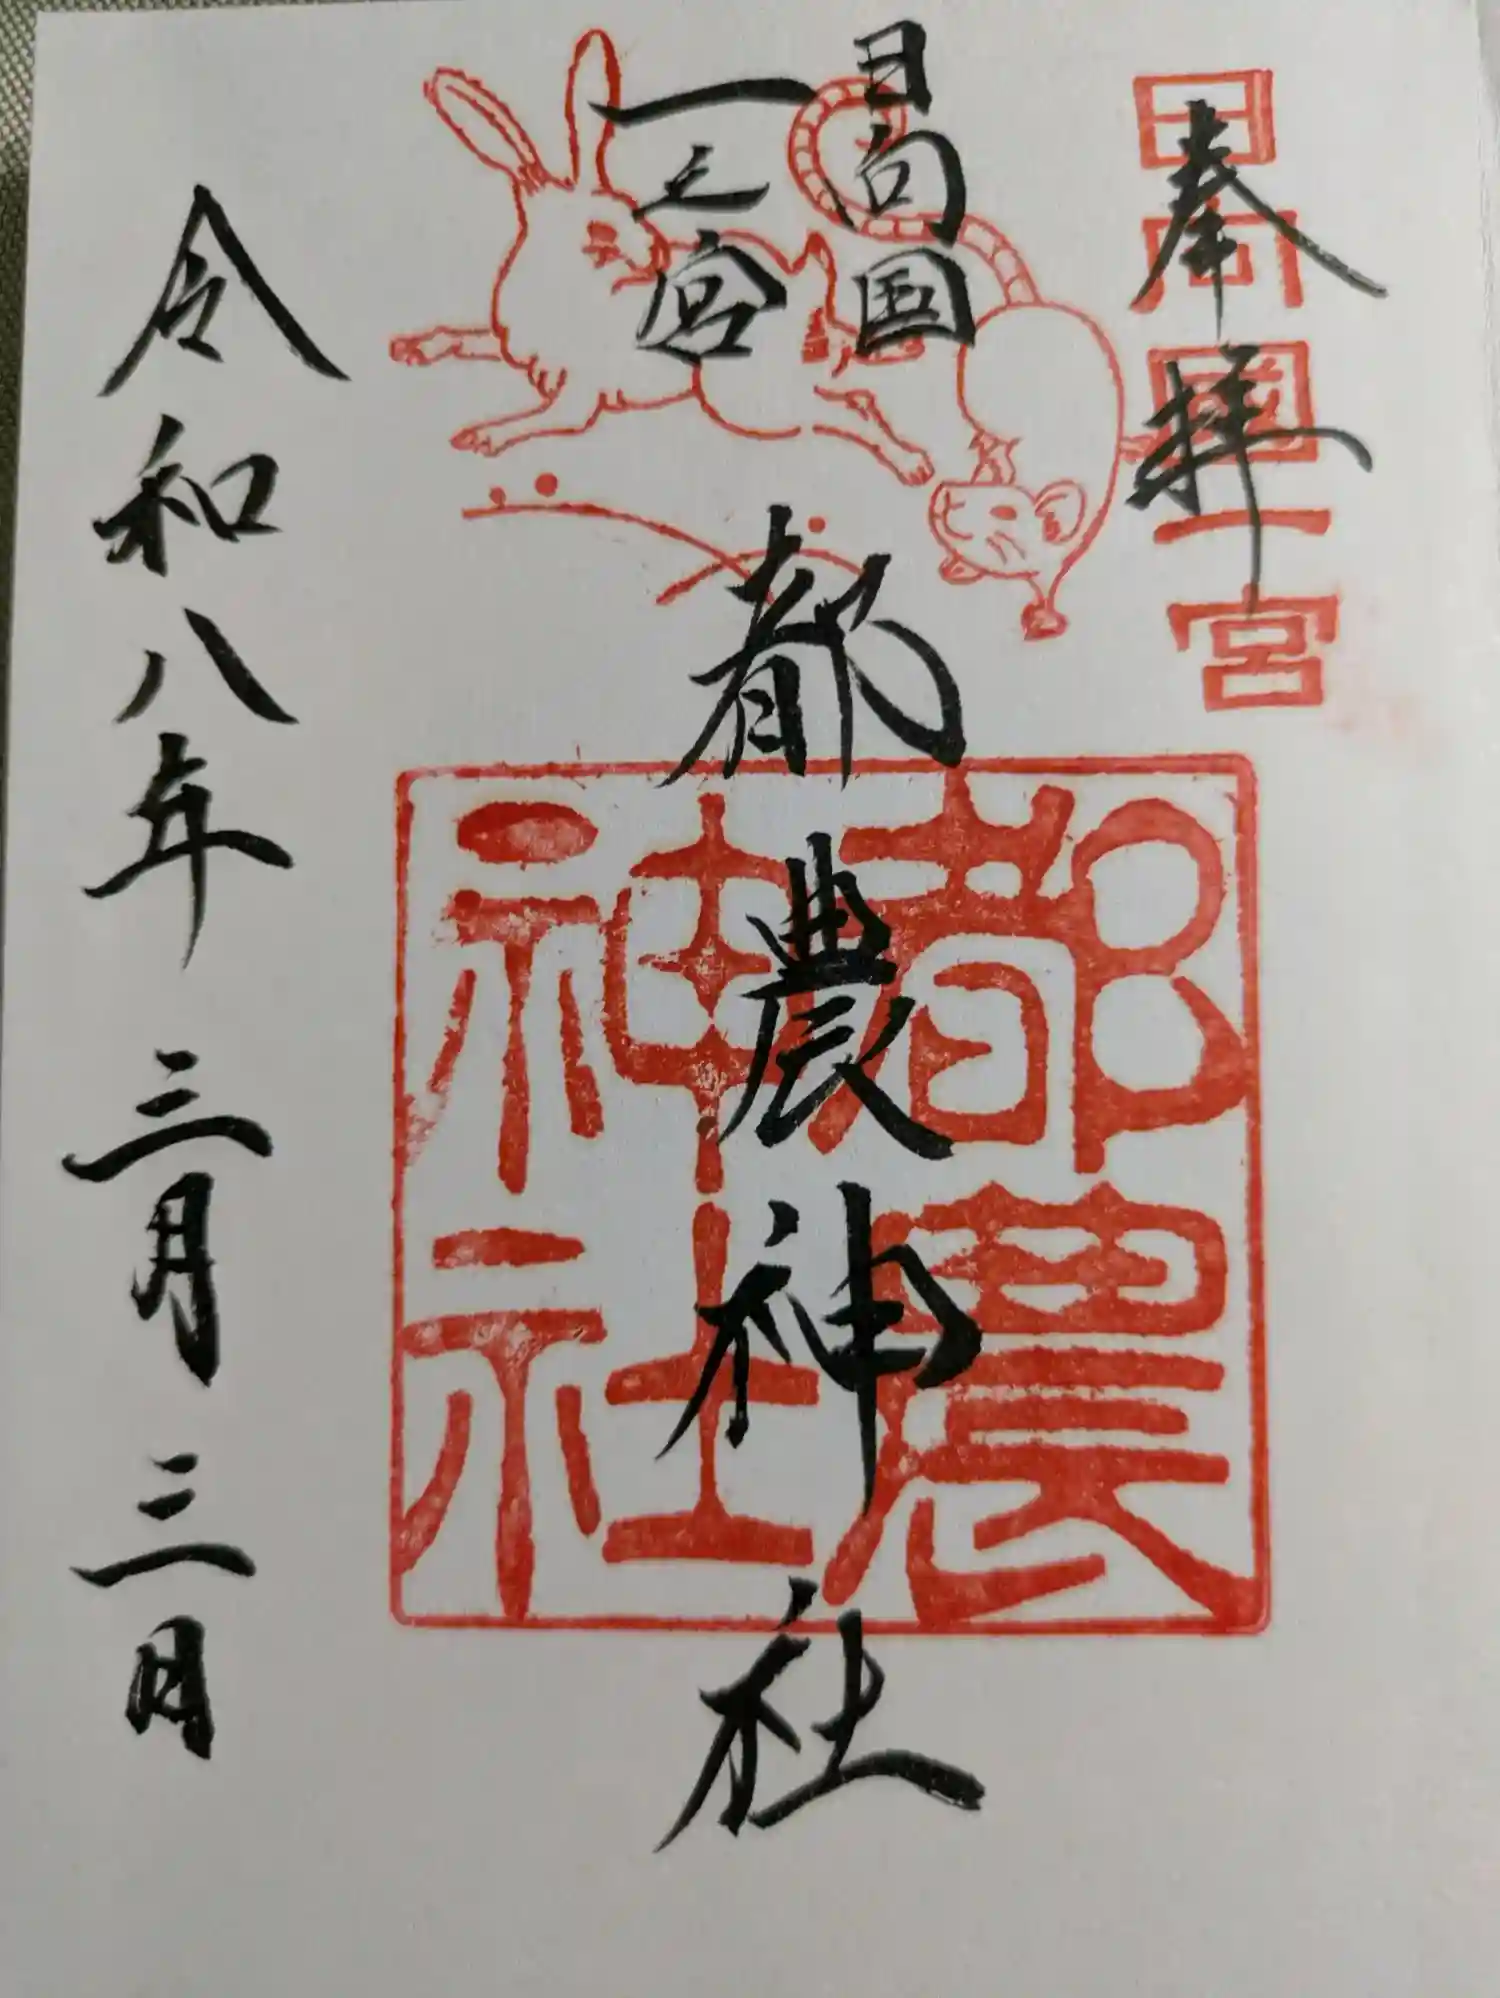 奉拝
日向國一宮
日向国
一之宮
都農神社
都農
神社
令和八年三月三日